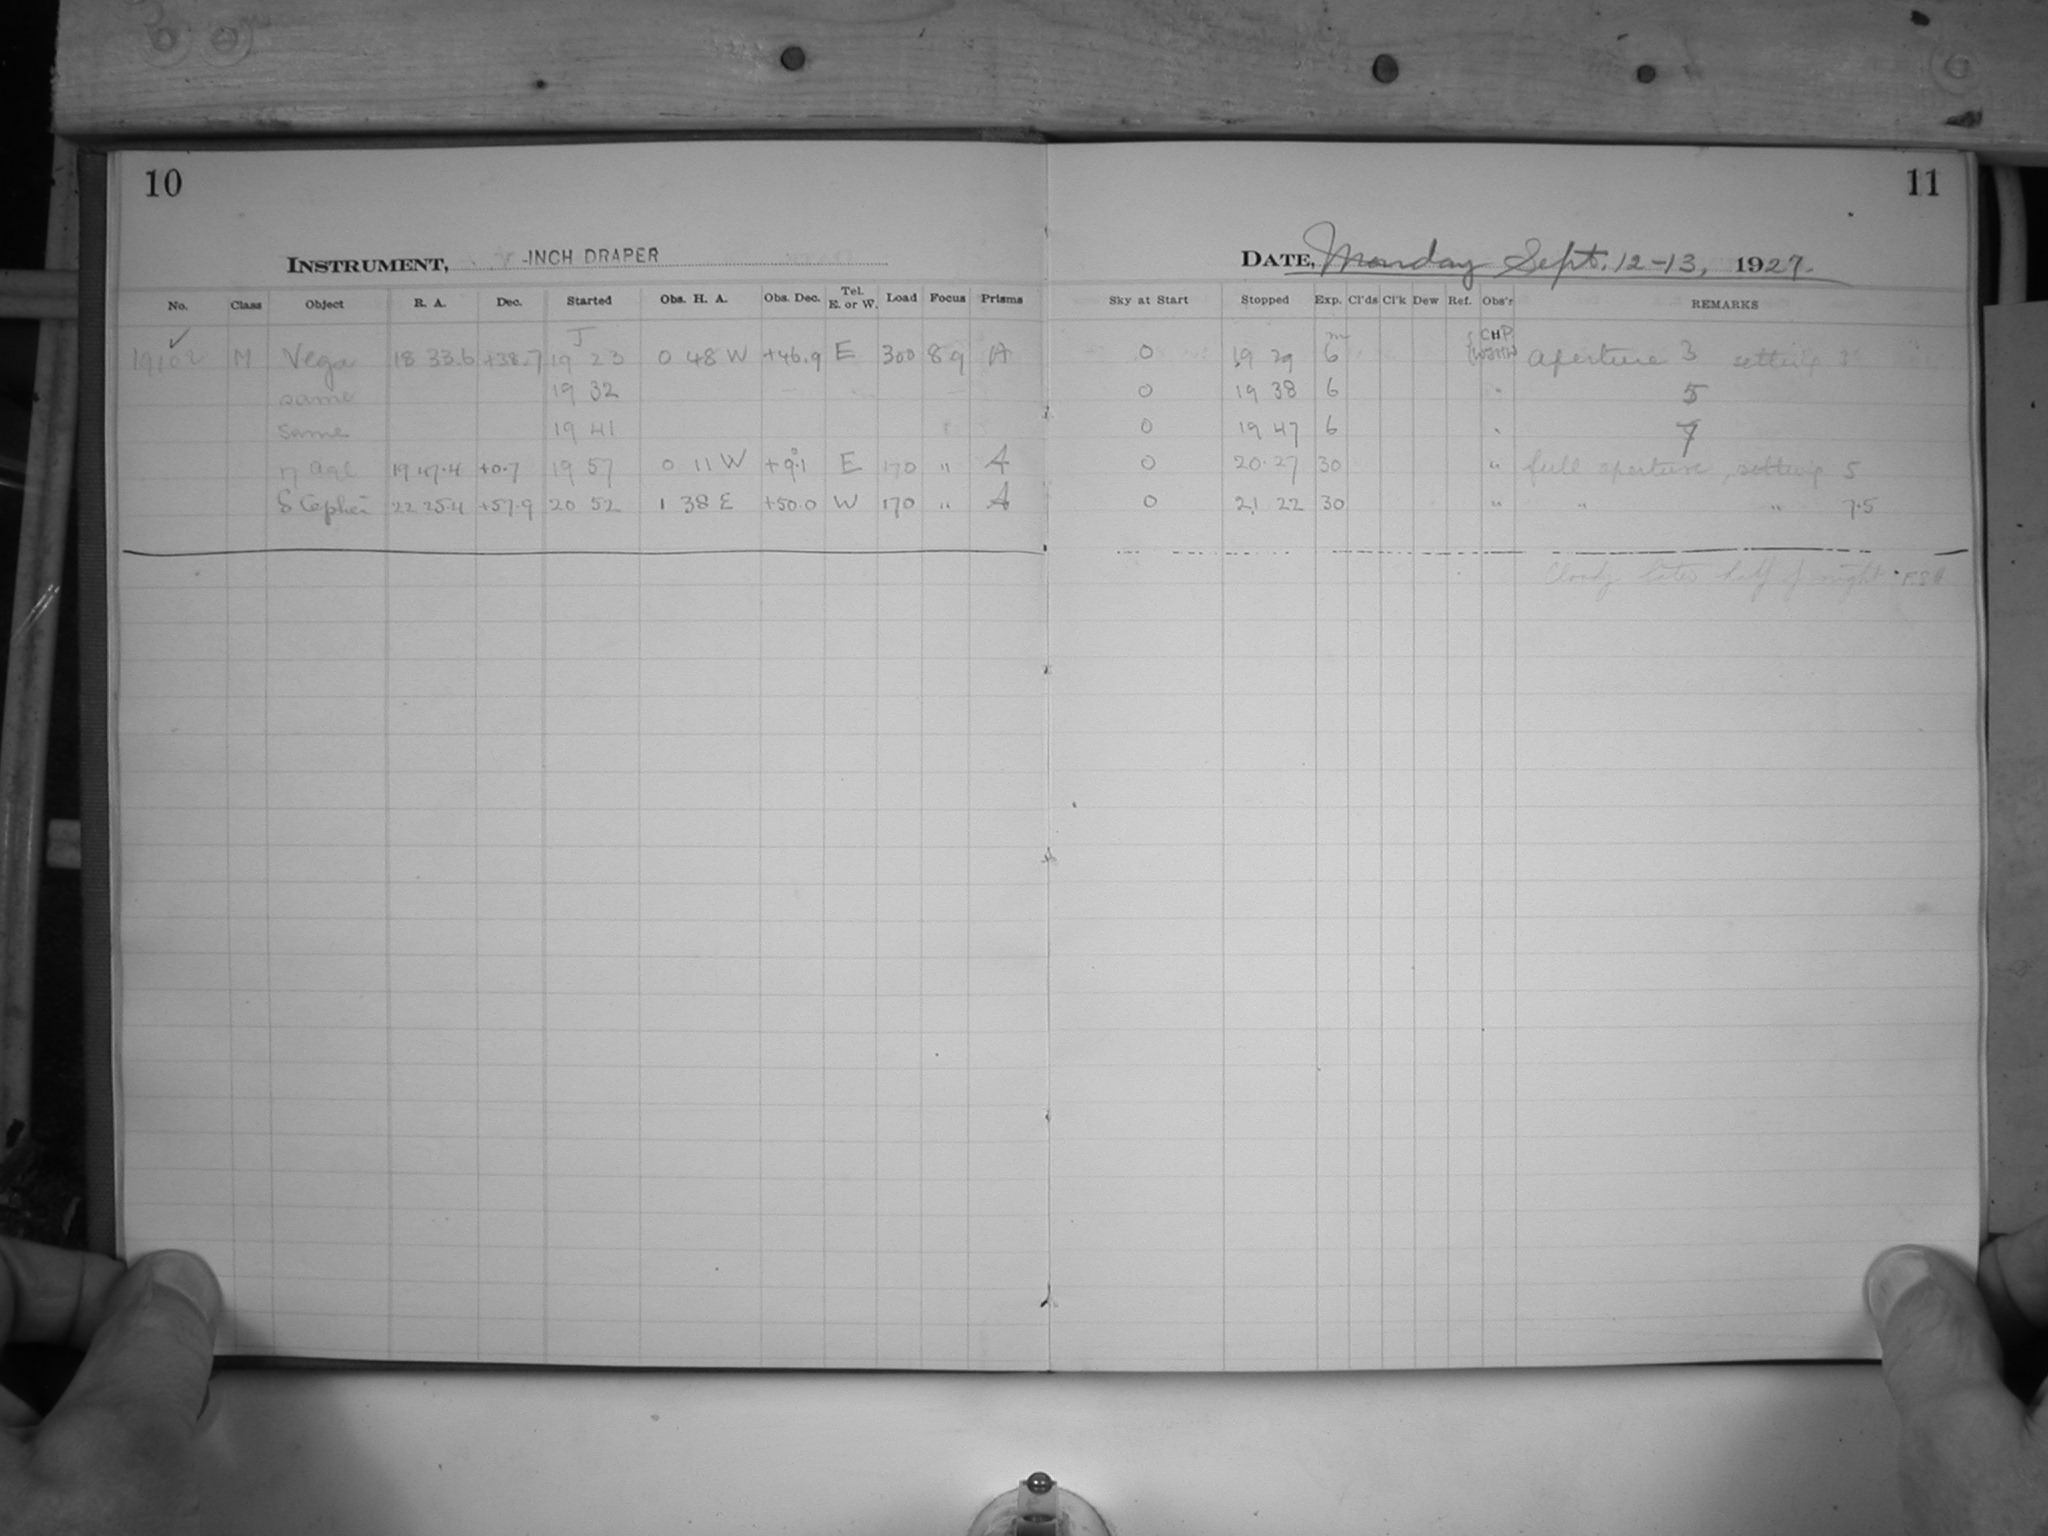 10
INSTRUMENT, -INCH DRAPER
No. Class Object R. A. Dec. Started Obs. H. A. Obs. Dec. Tel. E. or W. Load Focus Prisms
J
19102 M Vega 18 33.6 +38.7 19 23 0 48 W +46.9 E 300 89 A
same 19 32
same 19 41
η Aql 19 47.4 +0.7 19 57 0 11 W +9.1 E 170 " A
δ Cephei 22 25.4 +57.9 20 52 1 38 E +50.0 W 170 " A
11
DATE, Monday Sept. 12-13, 1927.
Sky at Start Stopped Exp. Cl'ds Cl'k Dew Ref. Obs'r REMARKS
m CHP
0 19 29 6 aperture 3 setting 3
0 19 38 6 " 5
0 19 47 6 " 7
0 20.27 30 " full aperture, setting 5
0 21 22 30 " " " 7.5
Cloudy later half of night